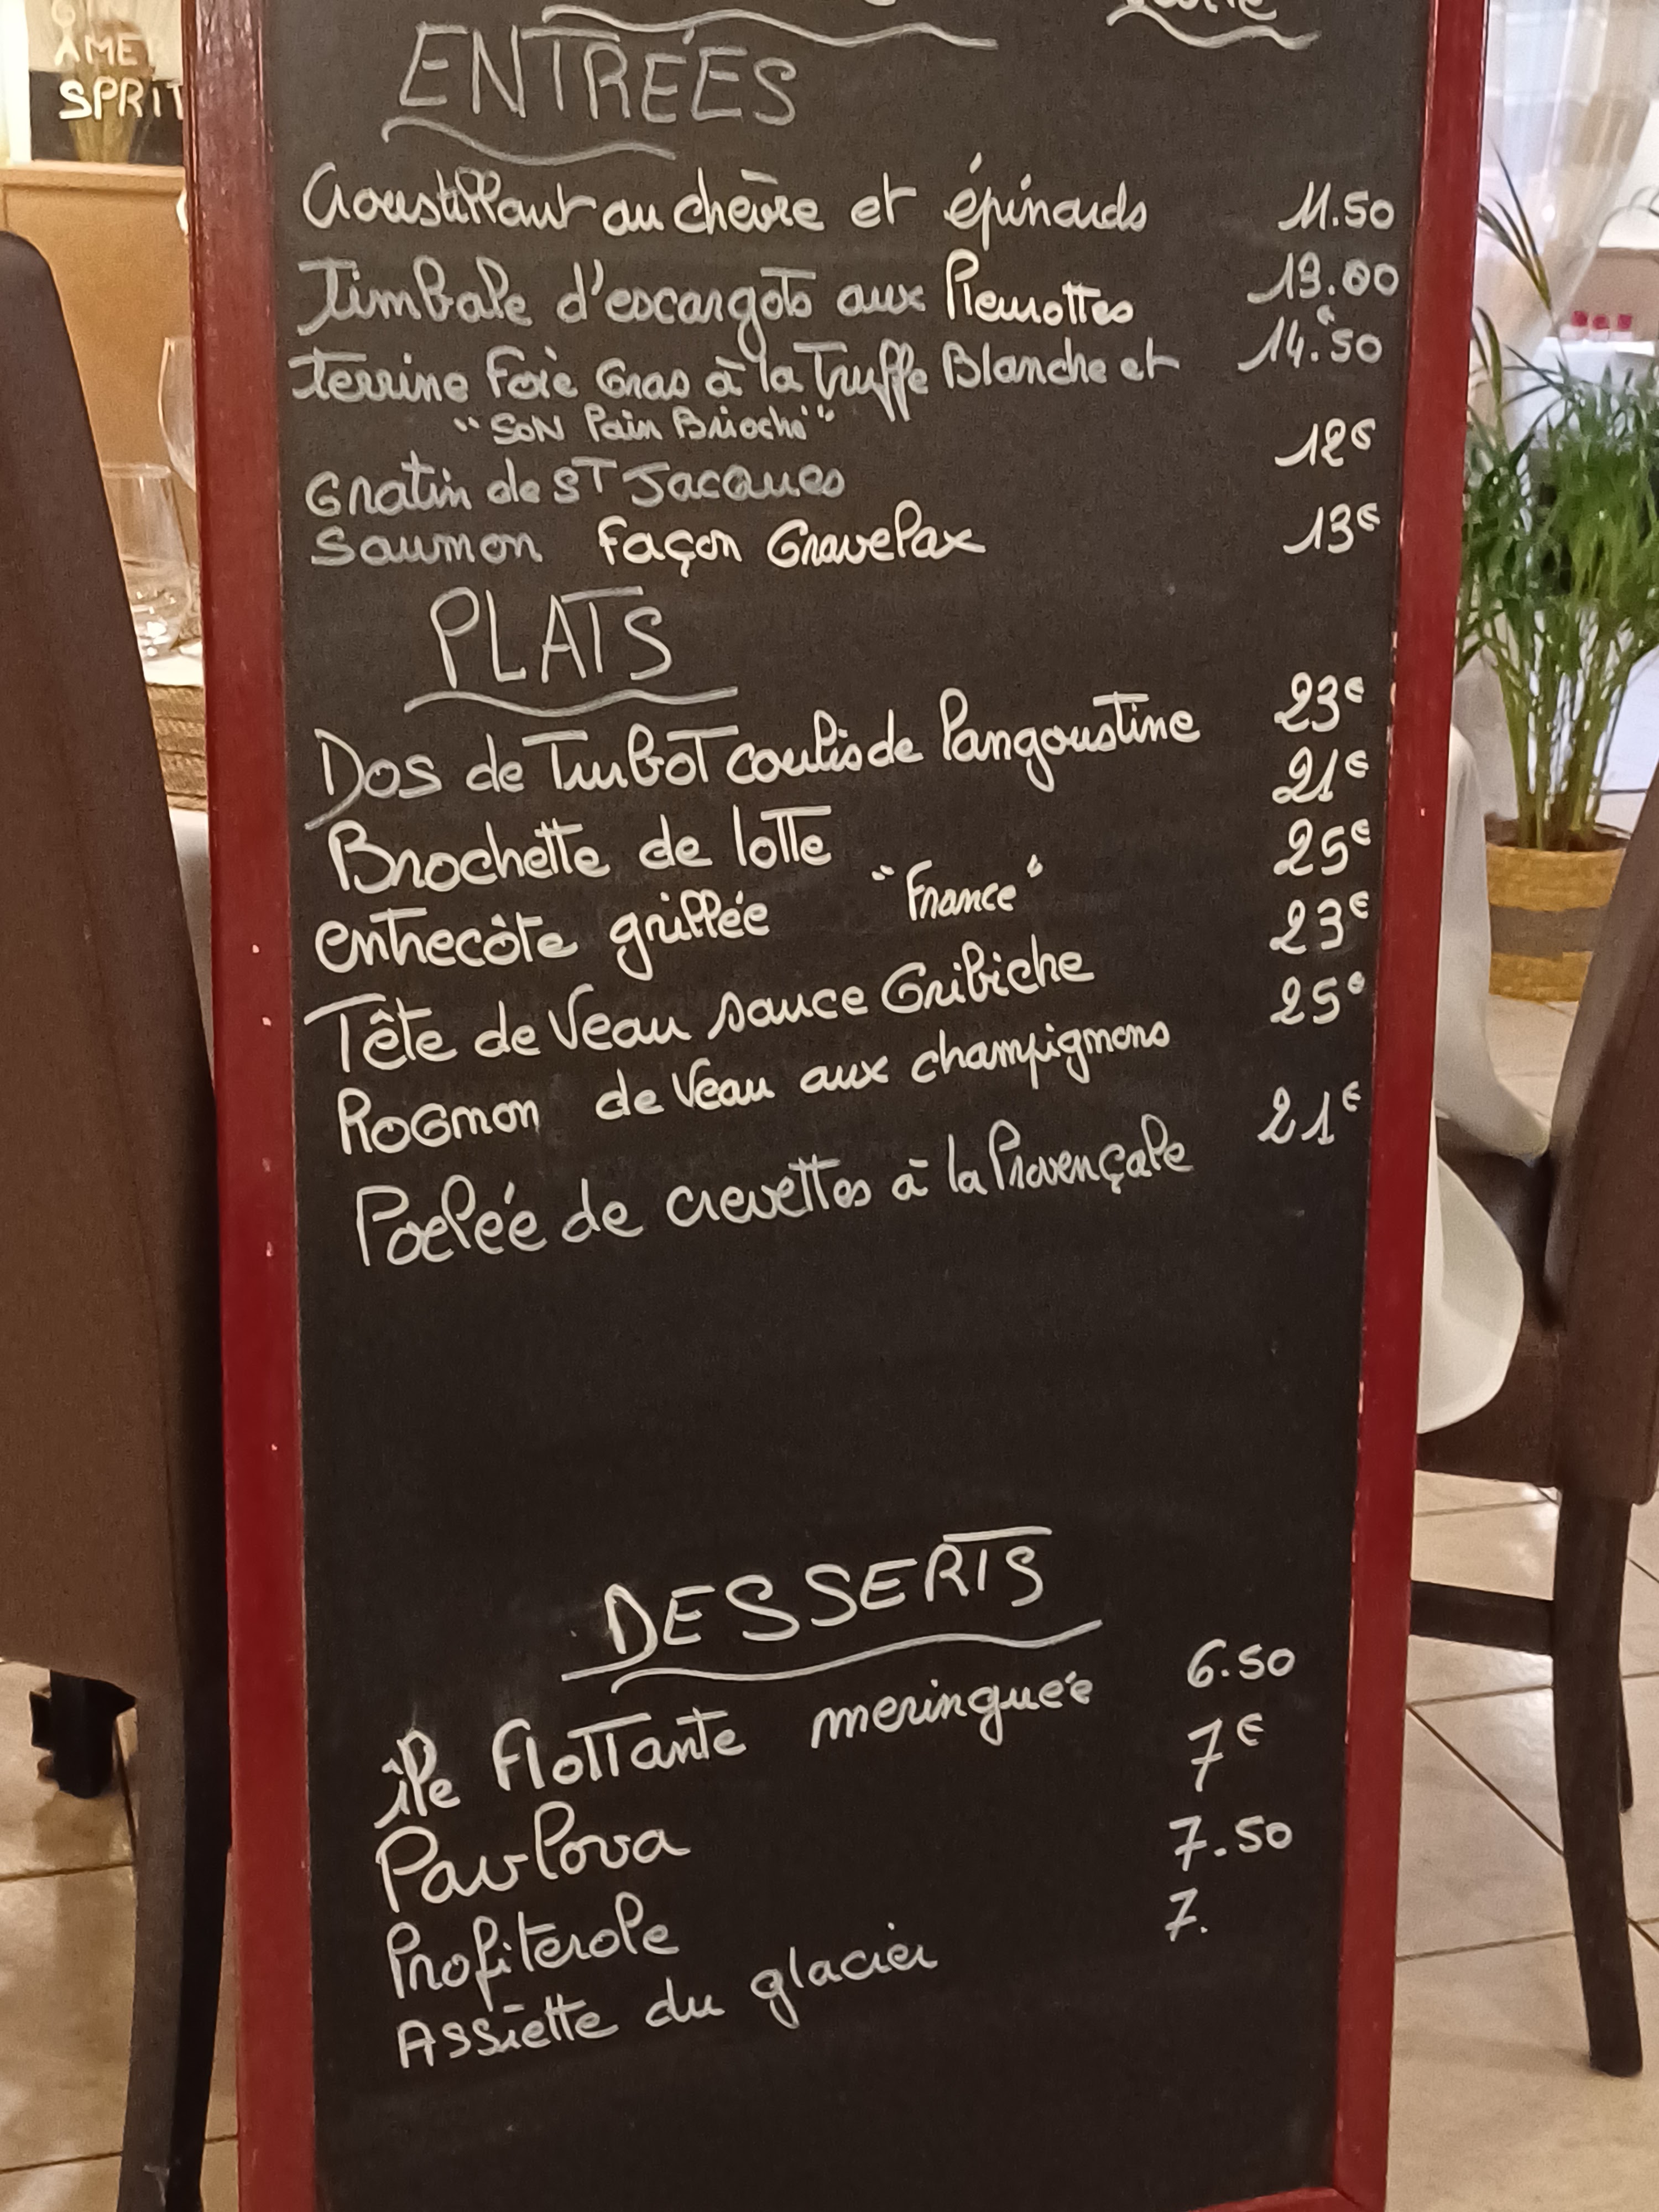 ÂME
SPRIT
ENTRÉES
Croustillant au chèvre et épinards 11.50
Timbale d'escargots aux Pleurottes 13.00
terrine Foie Gras à la Truffe Blanche et 14.50
"SON Pain Brioché"
Gratin de ST Jacques 12€
Saumon façon Gravelax 13€
PLATS
Dos de Turbot coulis de langoustine 23€
Brochette de lotte 21€
entrecôte grillée "France" 25€
Tête de Veau sauce Gribiche 23€
ROGnon de Veau aux champignons 25€
Poelée de crevettes à la Provençale 21€
DESSERTS
île flottante meringuée 6.50
Pavlova 7€
Profiterole 7.50
Assiette du glacier 7.